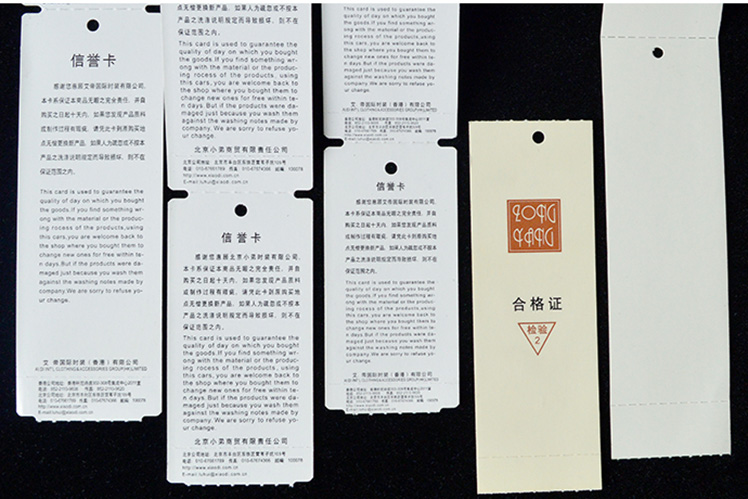 信誉卡
感谢您惠顾艾帝国际时装有限公司,
本卡系保证本商品无瑕之完全责任，并自
购买之日起十天内，如果您发现产品质料
或制作过程有瑕疵，请凭此卡到原购买地
点无偿更换新产品，如果人为疏忽或不按本
产品之洗涤说明规定而导致损坏，则不在
保证范围之内。
This card is used to guarantee the
quality of day on which you bought
the goods.If you find something wr-
ong with the material or the produc-
ing rocess of the products, using
this cars,you are welcome back to
the shop where you bought them to
change new ones for free within te-
n days.But if the products were da-
maged just because you wash them
against the washing notes made by
company.We are sorry to refuse yo-
ur change.
艾 帝国际时装（香港）有限公司
AIDI INT'L CLOTHING&ACCESSORIES GROUP HK LIMITED
点无偿更换新产品，如果人为疏忽或不按本
产品之洗涤说明规定而导致损坏，则不在
保证范围之内。
This card is used to guarantee the
quality of day on which you bought
the goods.If you find something wr-
ong with the material or the produc-
ing rocess of the products, using
this cars,you are welcome back to
the shop where you bought them to
change new ones for free within te-
n days.But if the products were da-
maged just because you wash them
against the washing notes made by
company.We are sorry to refuse yo-
ur change.
北京小弟商贸有限责任公司
E-mail:luhui@xiaodi.com.cn
信誉卡
感谢您惠顾北京小弟商贸有限公司,
本卡系保证本商品无瑕之完全责任，并自
购买之日起十天内，如果您发现产品质料
或制作过程有瑕疵，请凭此卡到原购买地
点无偿更换新产品，如果人为疏忽或不按本
产品之洗涤说明规定而导致损坏，则不在
保证范围之内。
This card is used to guarantee the
quality of day on which you bought
the goods.If you find something wr-
ong with the material or the produc-
ing rocess of the products, using
this cars,you are welcome back to
the shop where you bought them to
change new ones for free within te-
n days.But if the products were da-
maged just because you wash them
against the washing notes made by
company.We are sorry to refuse yo-
ur change.
北京小弟商贸有限责任公司
http://www.xiaodi.com.cn
E-mail:luhui@xiaodi.com.cn
rocess of the products, using
this cars,you are welcome back to
the shop where you bought them to
change new ones for free within te-
n days.But if the products were da-
maged just because you wash them
against the washing notes made by
company.We are sorry to refuse yo-
ur change.
艾 帝国际时装（香港）有限公司
AIDI INT'L CLOTHING&ACCESSORIES GROUP HK LIMITED
信誉卡
感谢您惠顾艾帝国际时装有限公司,
本卡系保证本商品无瑕之完全责任，并自
购买之日起十天内，如果您发现产品质料
或制作过程有瑕疵，请凭此卡到原购买地
点无偿更换新产品，如果人为疏忽或不按本
产品之洗涤说明规定而导致损坏，则不在
保证范围之内。
This card is used to guarantee the
quality of day on which you bought
the goods.If you find something wr-
ong with the material or the produc-
ing rocess of the products, using
this cars,you are welcome back to
the shop where you bought them to
change new ones for free within te-
n days.But if the products were da-
maged just because you wash them
against the washing notes made by
company.We are sorry to refuse yo-
ur change.
艾 帝国际时装（香港）有限公司
AIDI INT'L CLOTHING&ACCESSORIES GROUP HK LIMITED
合格证
检验
2